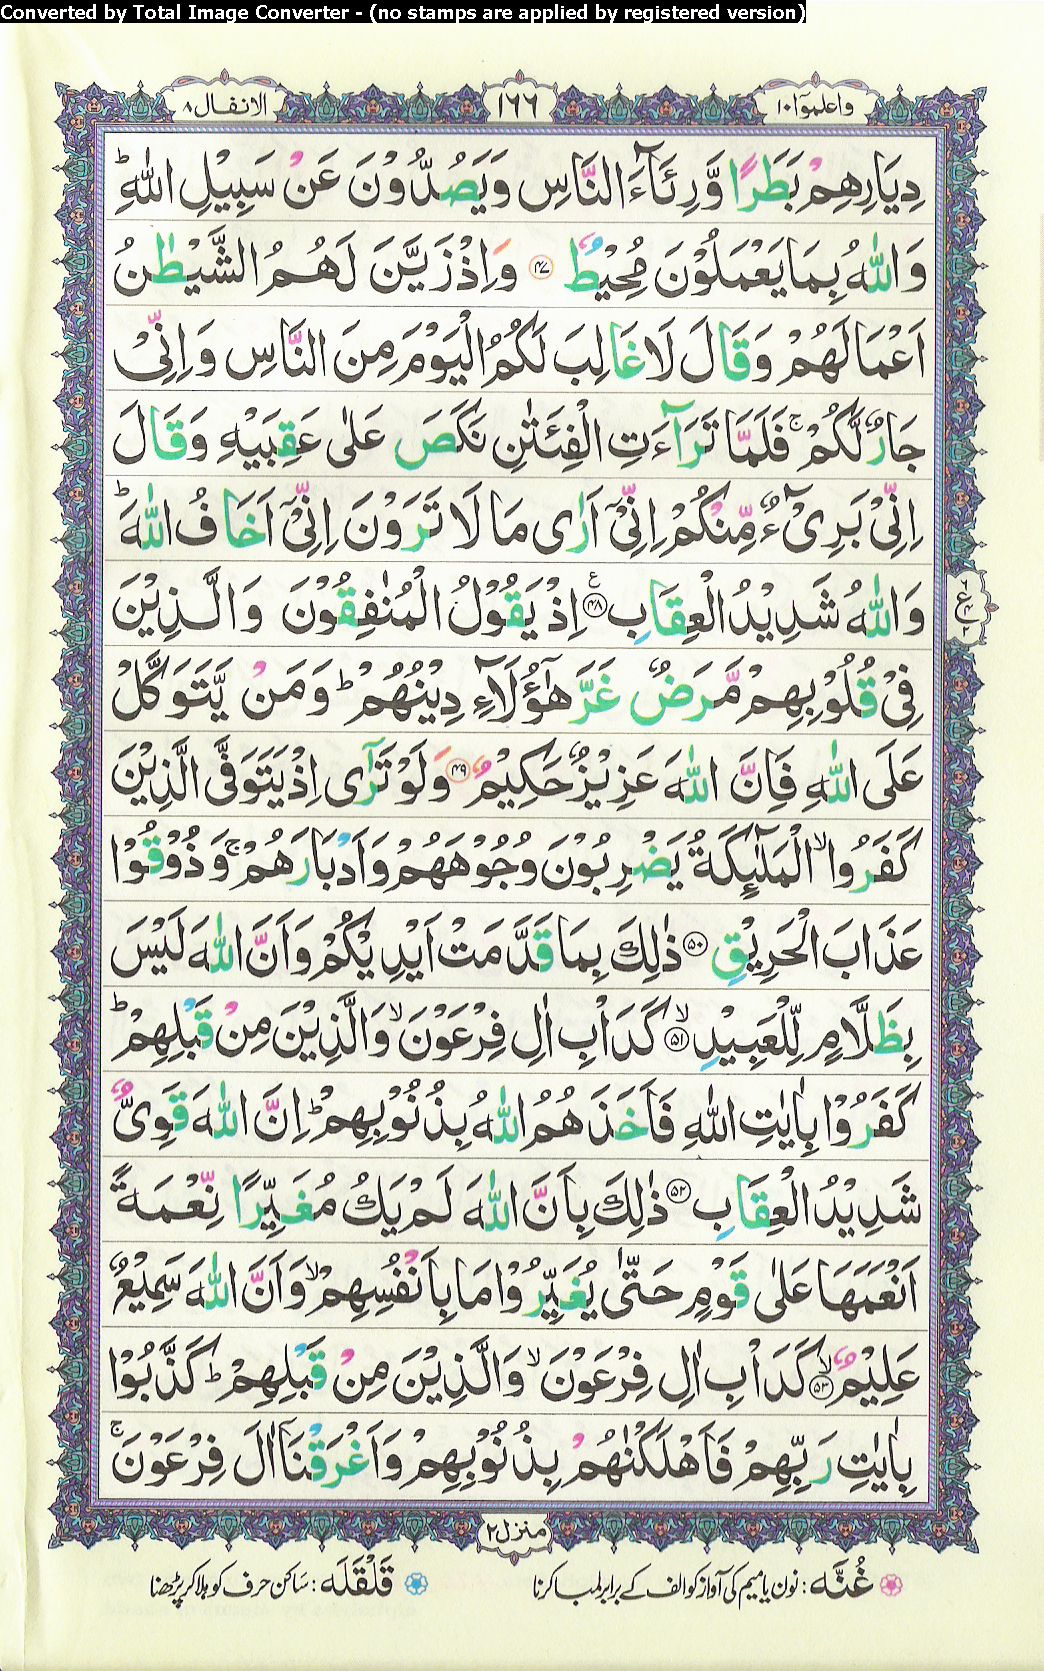 Converted by Total Image Converter - (no stamps are applied by registered version)
واعلموٓا ١٠ ١٦٦ الانفال ٨
دِيَارِهِمْ بَطَرًا وَّرِئَآءَ النَّاسِ وَيَصُدُّوْنَ عَنْ سَبِيْلِ اللّٰهِ ؕ
وَاللّٰهُ بِمَا يَعْمَلُوْنَ مُحِيْطٌ ﴿۴۷﴾ وَاِذْ زَيَّنَ لَهُمُ الشَّيْطٰنُ
اَعْمَالَهُمْ وَقَالَ لَا غَالِبَ لَكُمُ الْيَوْمَ مِنَ النَّاسِ وَاِنِّىْ
جَارٌ لَّكُمْ ۚ فَلَمَّا تَرَآءَتِ الْفِئَتٰنِ نَكَصَ عَلٰى عَقِبَيْهِ وَقَالَ
اِنِّىْ بَرِىْٓءٌ مِّنْكُمْ اِنِّىْٓ اَرٰى مَا لَا تَرَوْنَ اِنِّىْٓ اَخَافُ اللّٰهَ ؕ
وَاللّٰهُ شَدِيْدُ الْعِقَابِ ﴿۴۸﴾ ع اِذْ يَقُوْلُ الْمُنٰفِقُوْنَ وَالَّذِيْنَ
فِىْ قُلُوْبِهِمْ مَّرَضٌ غَرَّ هٰٓؤُلَآءِ دِيْنُهُمْ ؕ وَمَنْ يَّتَوَكَّلْ
عَلَى اللّٰهِ فَاِنَّ اللّٰهَ عَزِيْزٌ حَكِيْمٌ ﴿۴۹﴾ وَلَوْ تَرٰٓى اِذْ يَتَوَفَّى الَّذِيْنَ
كَفَرُوا ۙ الْمَلٰٓئِكَةُ يَضْرِبُوْنَ وُجُوْهَهُمْ وَاَدْبَارَهُمْ ۚ وَذُوْقُوْا
عَذَابَ الْحَرِيْقِ ﴿۵۰﴾ ذٰلِكَ بِمَا قَدَّمَتْ اَيْدِيْكُمْ وَاَنَّ اللّٰهَ لَيْسَ
بِظَلَّامٍ لِّلْعَبِيْدِ ﴿۵۱﴾ ۙ كَدَاْبِ اٰلِ فِرْعَوْنَ ۙ وَالَّذِيْنَ مِنْ قَبْلِهِمْ ؕ
كَفَرُوْا بِاٰيٰتِ اللّٰهِ فَاَخَذَهُمُ اللّٰهُ بِذُنُوْبِهِمْ ؕ اِنَّ اللّٰهَ قَوِىٌّ
شَدِيْدُ الْعِقَابِ ﴿۵۲﴾ ذٰلِكَ بِاَنَّ اللّٰهَ لَمْ يَكُ مُغَيِّرًا نِّعْمَةً
اَنْعَمَهَا عَلٰى قَوْمٍ حَتّٰى يُغَيِّرُوْا مَا بِاَنْفُسِهِمْ ۙ وَاَنَّ اللّٰهَ سَمِيْعٌ
عَلِيْمٌ ﴿۵۳﴾ ۙ كَدَاْبِ اٰلِ فِرْعَوْنَ ۙ وَالَّذِيْنَ مِنْ قَبْلِهِمْ ؕ كَذَّبُوْا
بِاٰيٰتِ رَبِّهِمْ فَاَهْلَكْنٰهُمْ بِذُنُوْبِهِمْ وَاَغْرَقْنَآ اٰلَ فِرْعَوْنَ ۚ
منزل ٢
غُنَّه : نون یا میم کی آواز کو الف کے برابر لمبا کرنا قَلْقَلَه : ساکن حرف کو ہلا کر پڑھنا